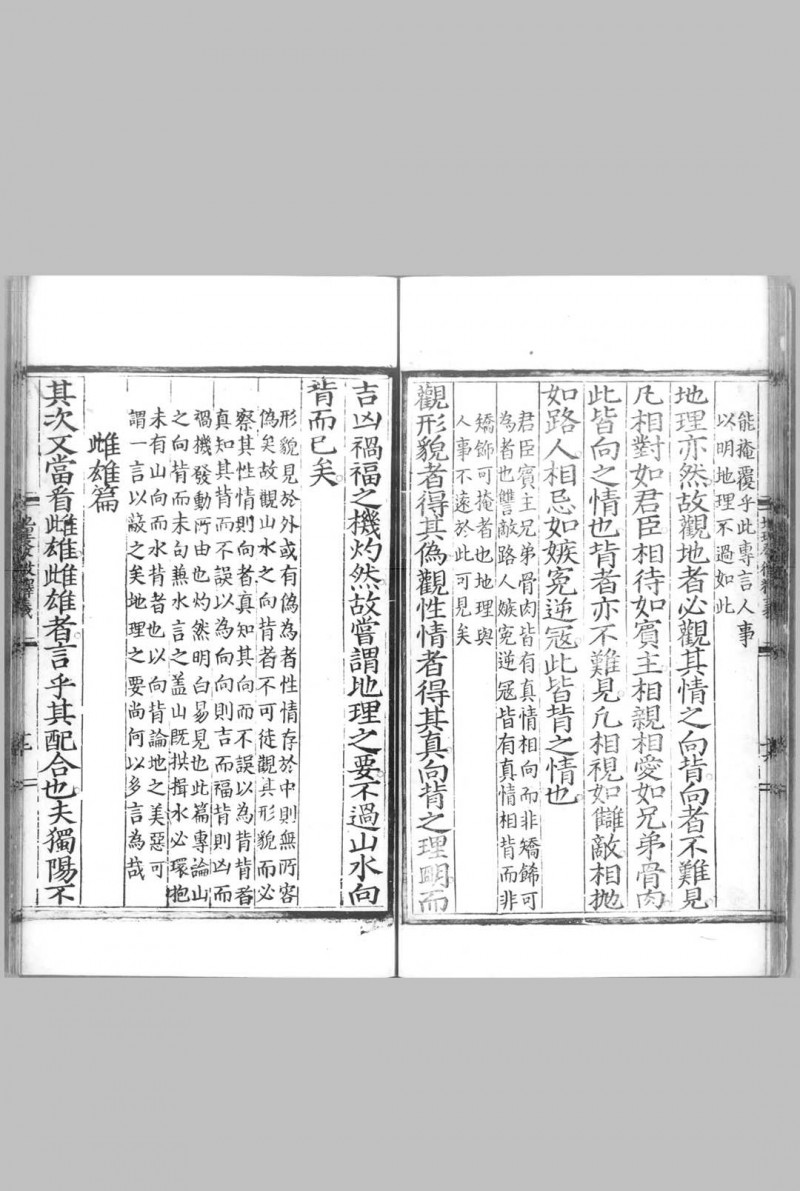 能掩覆乎此專言人事
以明地理不過如此
地理亦然故觀地者必觀其情之向背向者不難見
凡相對如君臣相待如賓主相親相愛如兄弟骨肉
此皆向之情也背者亦不難見凡相視如讎敵相抛
如路人相忌如嫉冤逆冦此皆背之情也
君臣賓主兄弟骨肉皆有真情相向而非矯餙可
為者也讐敵路人嫉寃逆冦皆有真情相背而非
矯餙可掩者也地理與
人事不遠於此可見矣
觀形貌者得其偽觀性情者得其真向背之理眀而
吉凶禍福之機灼然故嘗謂地理之要不過山水向
背而已矣
形貌見於外或有偽為者性情存於中則無所容
偽矣故觀山水之向背者不可徒觀其形貌而必
察其性情則向者真知其向而不誤以為背背者
真知其背而不誤以為向向則吉而福背則凶而
禍機發動所由也灼然明白易見也此篇專論山
之向背而未句兼水言之盖山既拱揖水必環抱
未有山向而水背者也以向背論地之美惡可
謂一言以蔽之矣地理之要尚何以多言為哉
雌雄篇
其次又當看雌雄雌雄者言乎其配合也夫獨陽不